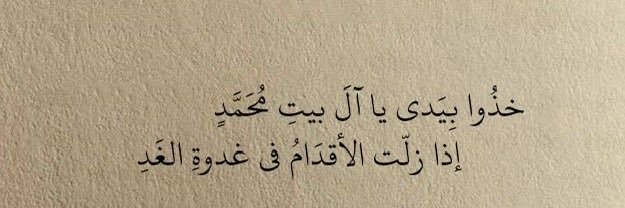 خذُوا بِيَدى يا آلَ بيتِ مُحَمَّدٍ
إذا زلّت الأقدَامُ فى غدوةِ الغَدِ